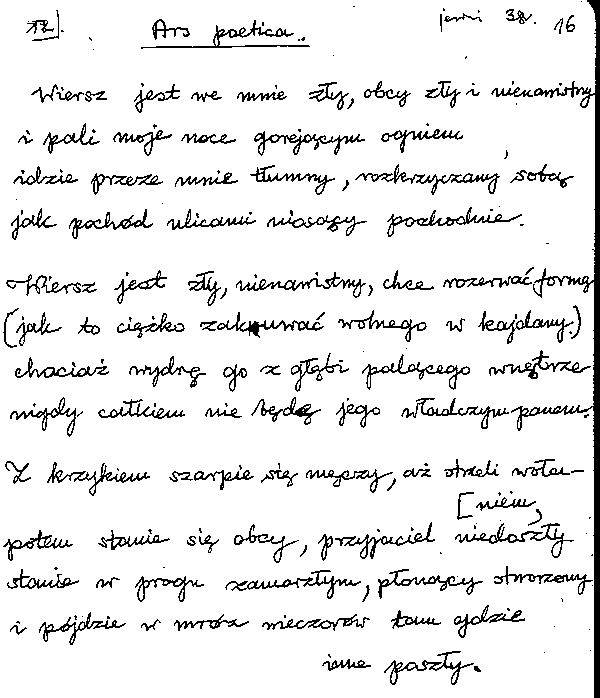 12). Ars poetica. jesień 38. 16
Wiersz jest we mnie zły, obcy zły i nienawistny
i pali moje noce gorejącym ogniem
idzie przeze mnie tłumny, rozkrzyczany sobą
jak pochód ulicami niosący pochodnie.
Wiersz jest zły, nienawistny, chce rozerwać formę
(jak to ciężko zakuwać wolnego w kajdany)
chociaż wydrę go z głębi palącego wnętrze
nigdy całkiem nie będę jego władczym panem.
Z krzykiem szarpie się męczy, aż strzeli woła-
[niem,
potem stanie się obcy, przyjaciel niedoszły
stanie w progu zamarzłym, płonący stworzony
i pójdzie w mróz wieczorów tam gdzie
inne poszły.